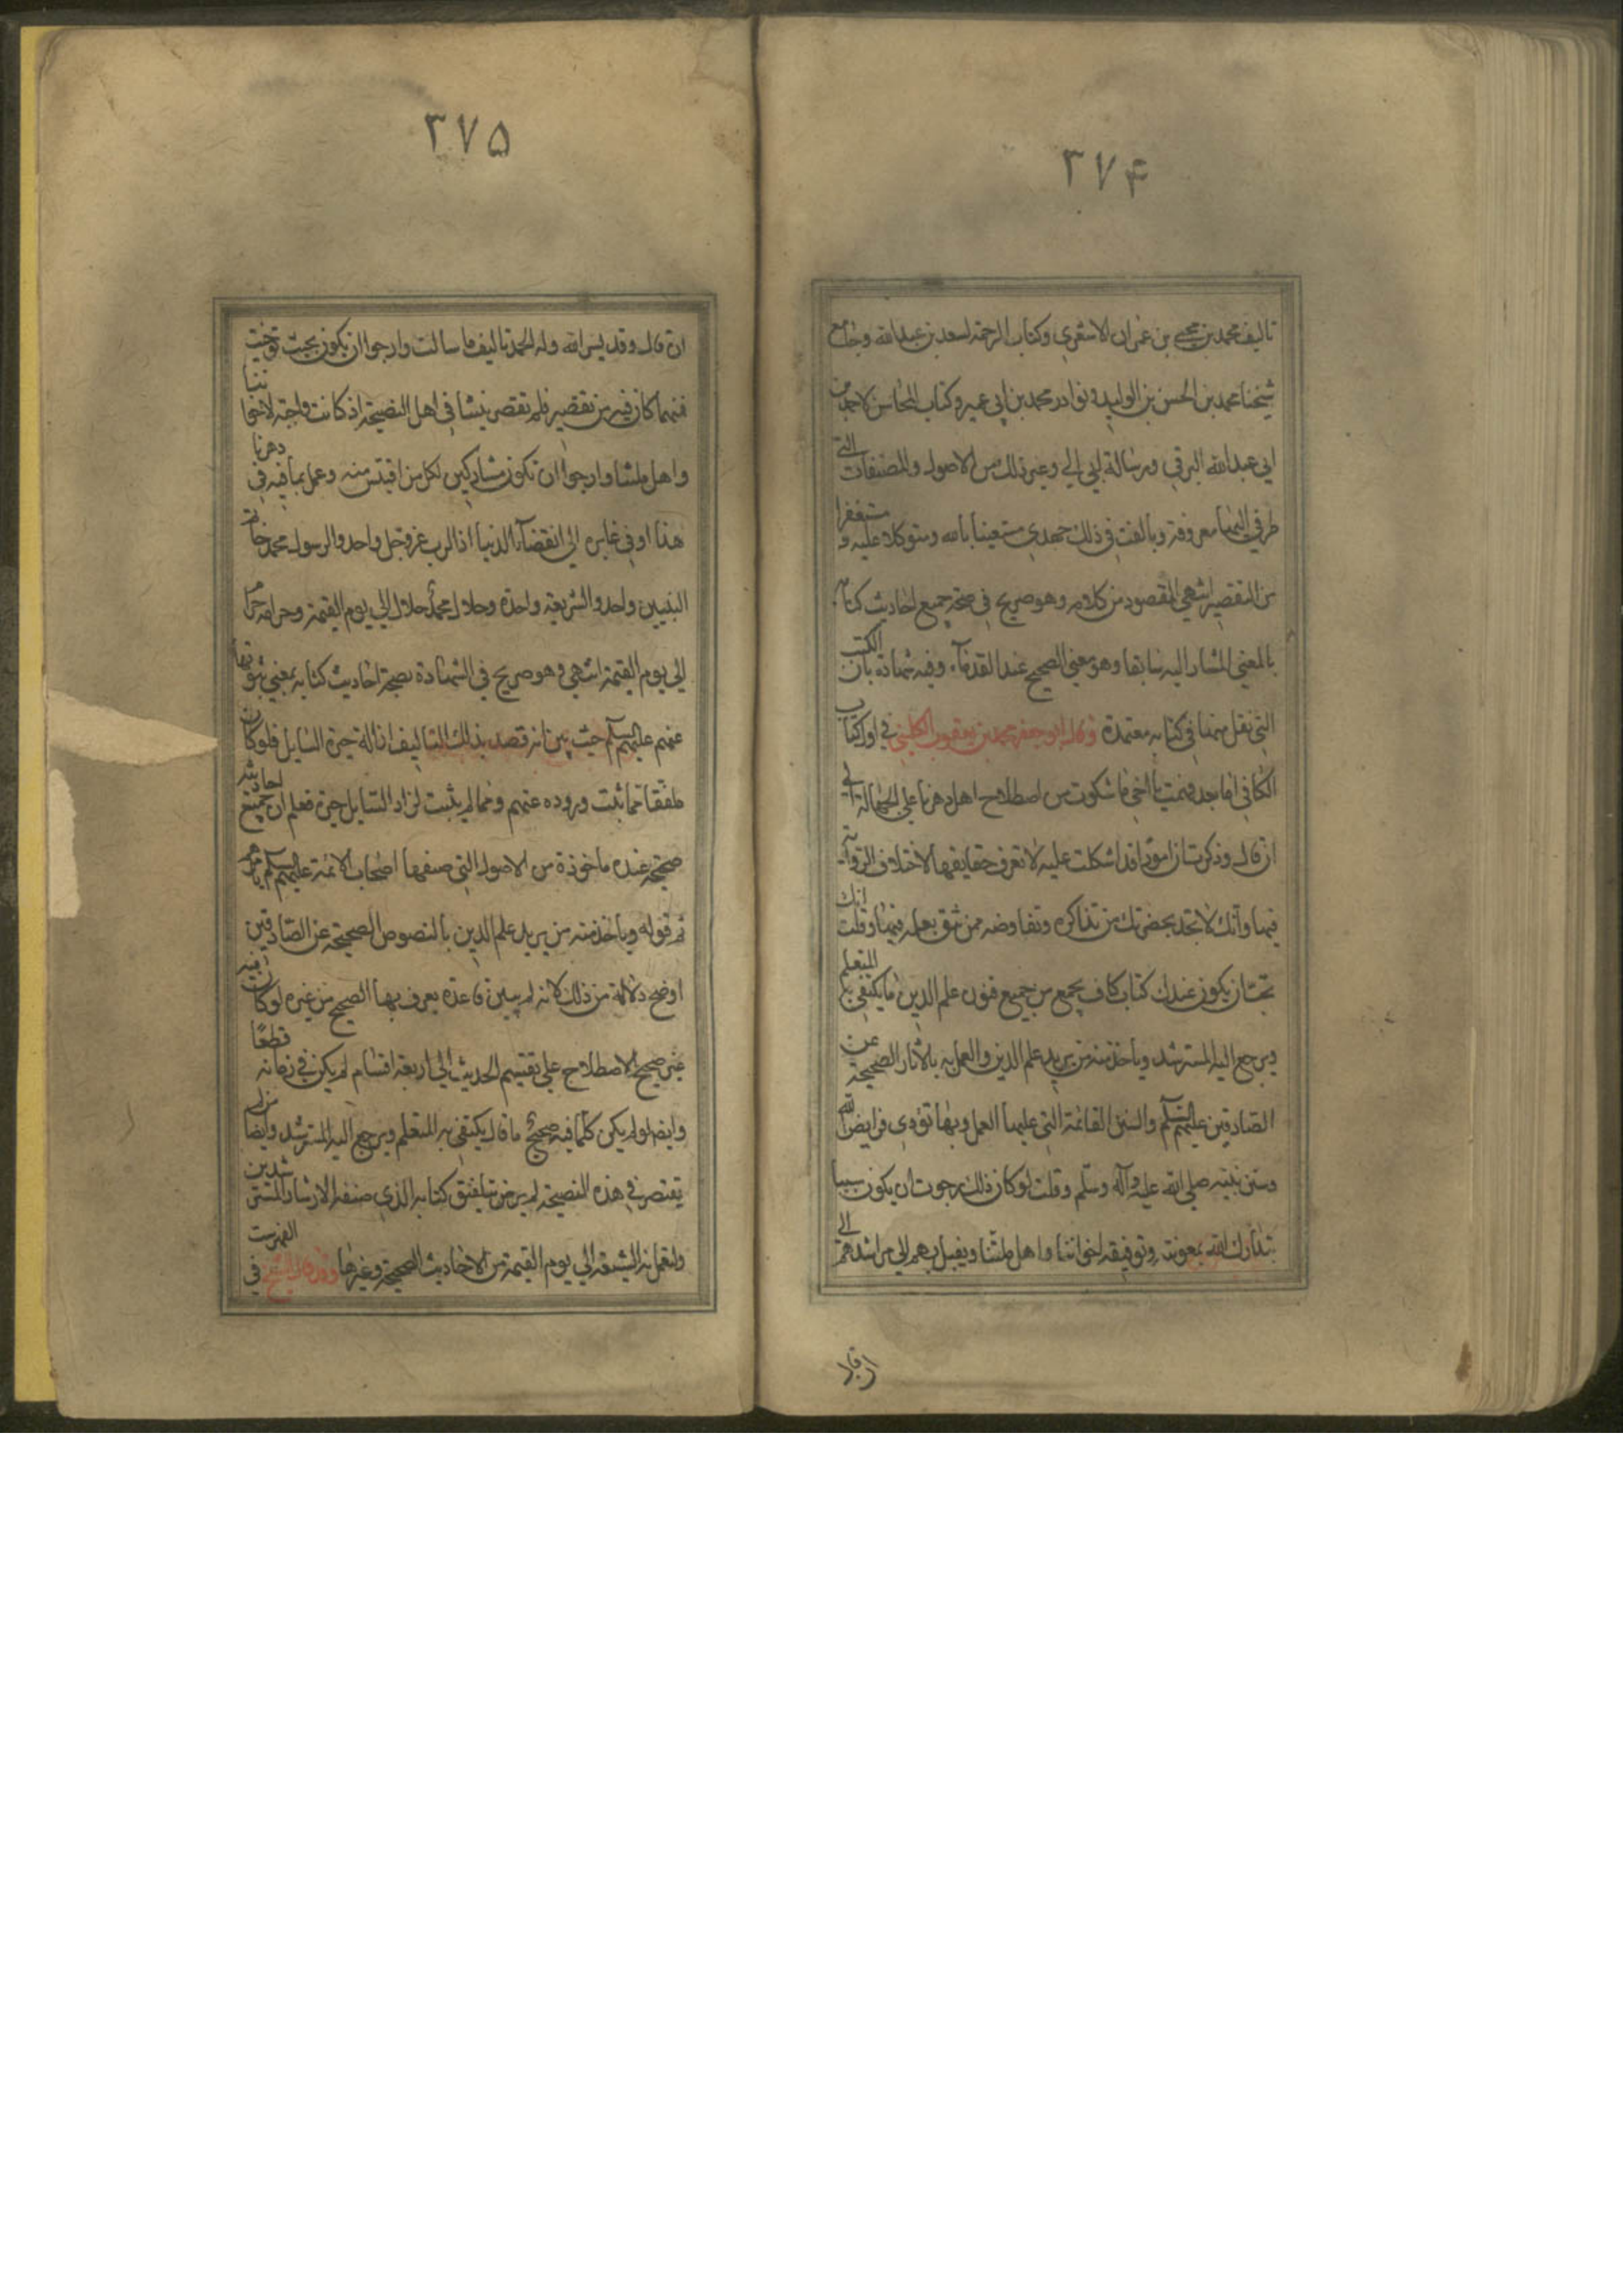 ۳۷۴
تاليف محمد بن يحيى بن عمران الاشعري وكتاب الرحمة لسعد بن عبدالله وجامع
شيخنا محمد بن الحسن بن الوليد ونوادر محمد بن ابي عمير وكتاب المحاسن لاحمد بن
ابي عبدالله البرقي ورسالة ابي الي وغير ذلك من الاصول والمصنفات التي
طرقي اليها معروفة وبالغت في ذلك جهدي مستعينا بالله ومتوكلا عليه ومستغفرا
من التقصير انتهى المقصود من كلامه وهو صريح في صحة جميع احاديث كتابه
بالمعنى المشار اليه سابقا وهو معنى الصحيح عند القدماء وفيه شهادة بان الكتب
التي نقل منها في كتابه معتمدة وقال ابو جعفر محمد بن يعقوب الكليني في اول كتاب
الكافي اما بعد فهمت يا اخي ما شكوت من اصطلاح اهل دهرنا على الجهالة الى
ان قال وذكرت ان امورا قد اشكلت عليه لا تعرف حقايقها لاختلاف الرواية
فيها وانك لا تجد بحضرتك من تذاكره وتفاوضه ممن تثق بعلمه فيها وقلت انك
تحب ان يكون عندك كتاب كاف يجمع من جميع فنون علم الدين ما يكتفي به المتعلم
ويرجع اليه المسترشد وياخذ منه من يريد علم الدين والعمل به بالآثار الصحيحة عن
الصادقين عليهم السلم والسنن القائمة التي عليها العمل وبها تؤدى فرايض الله
وسنن نبيه صلى الله عليه وآله وسلم وقلت لو كان ذلك رجوت ان يكون سببا
يتدارك الله بمعونته وتوفيقه اخواننا واهل ملتنا ويقبل بهم الى مراشدهم الى
ان قال
۳۷۵
ان قال وقد يسر الله وله الحمد تاليف ما سالت وارجوا ان يكون بحيث توخيت
فمهما كان فيه من تقصير فلم تقصر نيتنا في اهل النصيحة اذ كانت واجبة لاخواننا
واهل ملتنا وارجوا ان نكون مشاركين لكل من اقتبس منه وعمل بما فيه في دهرنا
هذا او في غابره الى انقضآء الدنيا اذ الرب عز وجل واحد والرسول محمد خاتم
النبيين واحد والشريعة واحدة وحلال محمد حلال الى يوم القيمة وحرامه حرام
الى يوم القيمة انتهى وهو صريح في الشهادة بصحة احاديث كتابه بمعنى ثبوتها
عنهم عليهم السلم حيث بين انه قصد بذلك التاليف ازالة حيرة السايل فلو كان
ملفقا مما ثبت وروده عنهم ومما لم يثبت لزاد السايل حيرة فعلم ان جميع احاديثه
صحيحة عنده ماخوذة من الاصول التي صنفها اصحاب الائمة عليهم السلم بامرهم
ثم قوله وياخذ منه من يريد علم الدين بالنصوص الصحيحة عن الصادقين
اوضح دلالة من ذلك لانه لم يبين قاعدة يعرف بها الصحيح من غيره لو كان فيه
غير صحيح الاصطلاح على تقسيم الحديث الى اربعة اقسام لم يكن في زمانه قطعًا
وايضا لو لم يكن كلما فيه صحيح ما قال يكتفي به المتعلم ويرجع اليه المسترشد وايضا من لم
يقتصر في هذه النصيحة لم يرض بتلفيق كتابه الذي صنفه لارشاد المسترشدين
ولتعمل به الشيعة الى يوم القيمة من الاحاديث الصحيحة وغيرها وقد قال الشيخ في الفهرست